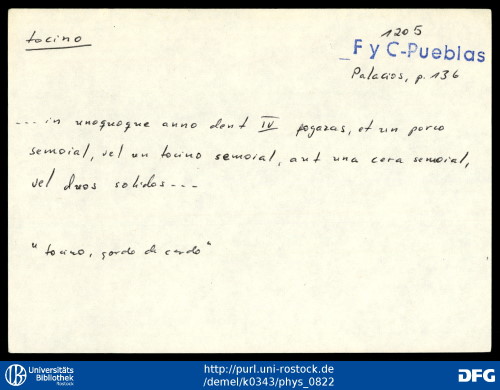 tocino
1205
F y C-Pueblas
Palacios, p. 136
--- in unoquoque anno dent IV fogazas, et un porco
semoial, vel un tocino semoial, aut una cera semoial,
vel duos solidos ---
"tocino, gordo de cerdo"
Universitäts
Bibliothek
Rostock
http://purl.uni-rostock.de
/demel/k0343/phys_0822
DFG